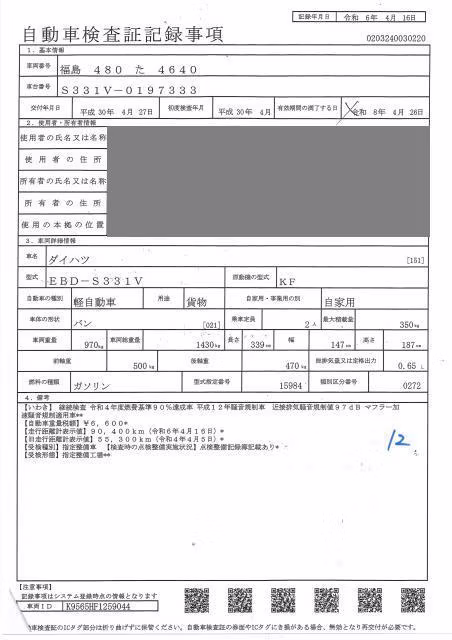 記録年月日 令和 6年 4月 16日
自動車検査証記録事項
0203240030220
1. 基本情報
車両番号 福島 480 た 4640
車台番号 S331V-0197333
交付年月日 平成 30年 4月 27日 初度検査年月 平成 30年 4月 有効期間の満了する日 令和 8年 4月 26日
2. 使用者・所有者情報
使用者の氏名又は名称
使用者の住所
所有者の氏名又は名称
所有者の住所
使用の本拠の位置
3. 車両詳細情報
車名 ダイハツ [151]
型式 EBD-S331V 原動機の型式 KF
自動車の種別 軽自動車 用途 貨物 自家用・事業用の別 自家用
車体の形状 バン [021] 乗車定員 2人 最大積載量 350kg
車両重量 970kg 車両総重量 1430kg 長さ 339cm 幅 147cm 高さ 187cm
前軸重 500kg 後軸重 470kg 総排気量又は定格出力 0.65 L
燃料の種類 ガソリン 型式指定番号 15984 類別区分番号 0272
4. 備考
【いわき】 継続検査 令和4年度燃費基準90%達成車 平成12年騒音規制車 近接排気騒音規制値97dB マフラー加
速騒音規制適用車**
【自動車重量税額】¥6,600*
【走行距離計表示値】90,400km(令和6年4月16日)*
【旧走行距離計表示値】55,300km(令和4年4月5日)*
【受検種別】指定整備車 【検査時の点検整備実施状況】点検整備記録簿記載あり*
【受検形態】指定整備工場**
12
【注意事項】
記録事項はシステム登録時点の情報となります
車両ID K9565HF1259044
動車検査証のICタグ部分は折り曲げずに保管ください。自動車検査証の券面やICタグにき損がある場合、無効となり再交付が必要です。